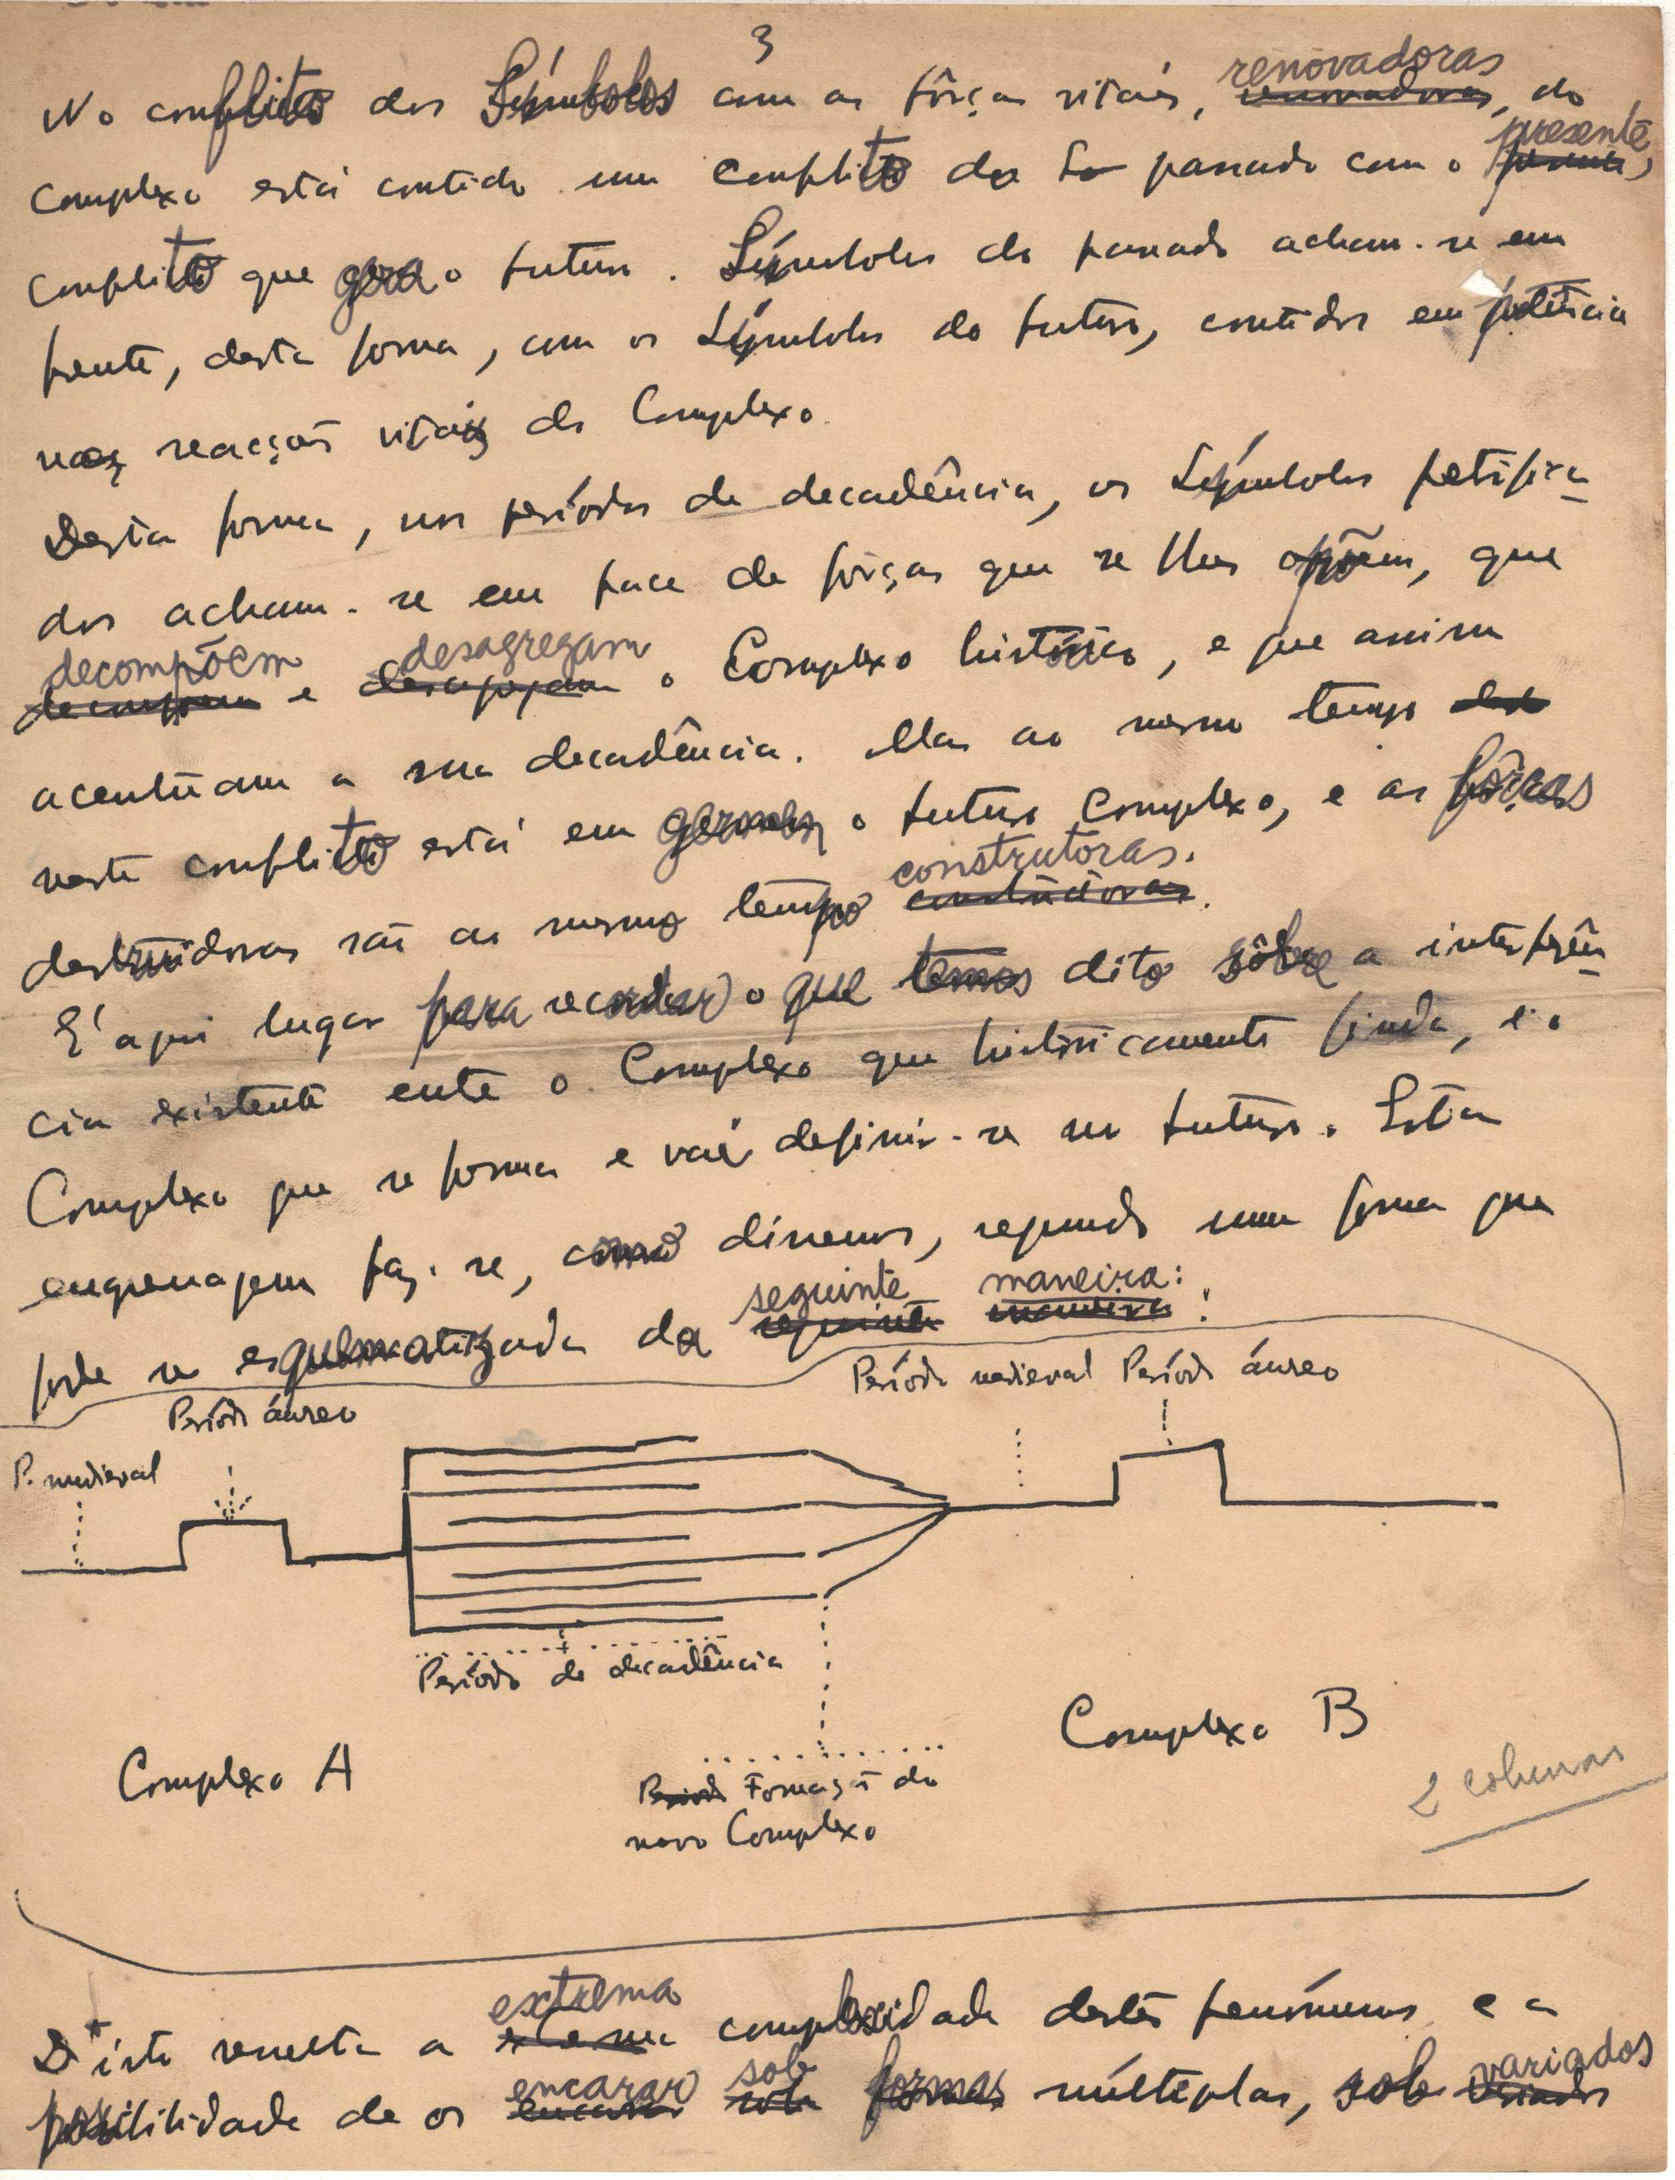 3
No conflito dos Símbolos com as fôrças vitais, renovadoras, do
complexo está contido um conflito do passado com o presente,
conflito que gera o futuro. Símbolos do passado acham-se em
frente, desta forma, com os Símbolos do futuro, contidos em potência
nas reacções vitais do Complexo.
Desta forma, nos períodos de decadência, os Símbolos petrifica-
dos acham-se em face de fôrças que se lhes opõem, que
decompõem e desagregam o Complexo histórico, e que assim
acentuam a sua decadência. Mas ao mesmo tempo
neste conflito está em germen o futuro Complexo, e as fôrças
destruidoras são ao mesmo tempo construtoras.
E' aqui lugar para recordar o que temos dito sôbre a interferên-
cia existente entre o Complexo que historicamente finda, e o
Complexo que se forma e vai definir-se no futuro. Esta
engrenagem faz-se, como dissemos, segundo uma forma que
pode ser esquematizada da seguinte maneira:
Período medieval Período áureo
Período áureo
P. medieval
Período de decadência
Complexo B
Complexo A
Formação do
novo Complexo
2 colunas
D'isto resulta a extrema complexidade destes fenómenos e a
possibilidade de os encarar sob formas múltiplas, sob variados